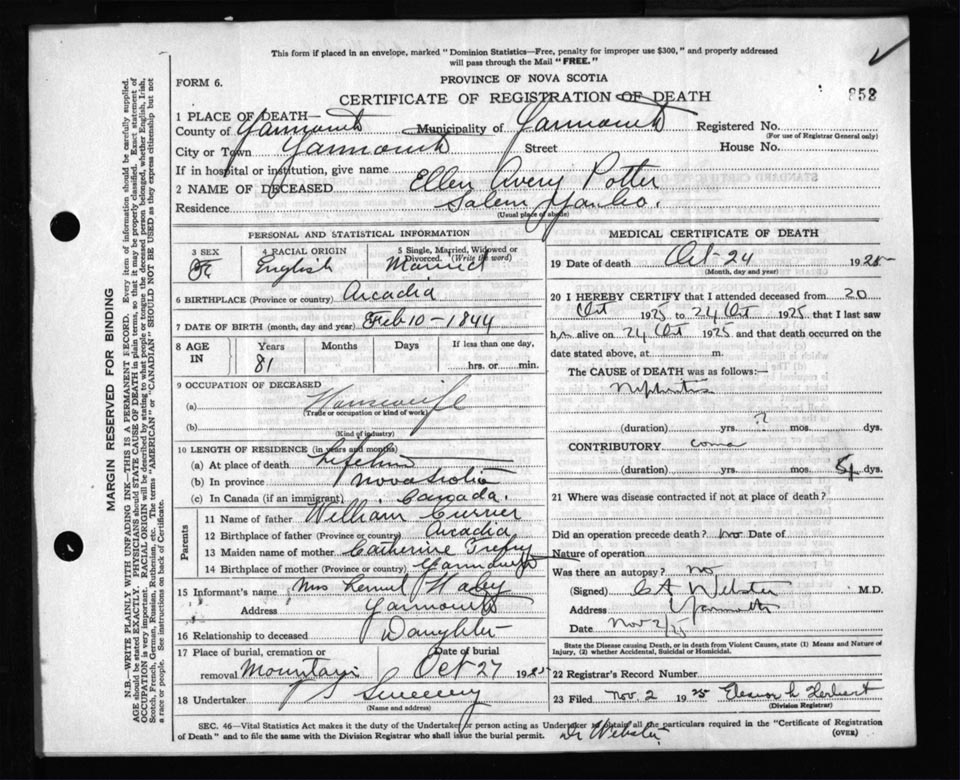 This form if placed in an envelope, marked "Dominion Statistics—Free, penalty for improper use $300," and properly addressed
will pass through the Mail "FREE."
FORM 6.
PROVINCE OF NOVA SCOTIA
CERTIFICATE OF REGISTRATION OF DEATH
852
1 PLACE OF DEATH—
County of Yarmouth Municipality of Yarmouth Registered No.
(For use of Registrar General only)
City or Town Yarmouth Street House No.
If in hospital or institution, give name
2 NAME OF DECEASED Ellen Avery Potter
Residence Salem Yar. Co.
(Usual place of abode)
PERSONAL AND STATISTICAL INFORMATION
3 SEX 4 RACIAL ORIGIN 5 Single, Married, Widowed or
Divorced. (Write the word)
English Married
6 BIRTHPLACE (Province or country) Arcadia
7 DATE OF BIRTH (month, day and year) Feb 10-1844
8 AGE IN Years Months Days If less than one day,
81 hrs. or min.
9 OCCUPATION OF DECEASED
(a) Housewife
(Trade or occupation or kind of work)
(b)
(Kind of industry)
10 LENGTH OF RESIDENCE (in years and months)
(a) At place of death Lifetime
(b) In province Nova Scotia
(c) In Canada (if an immigrant) Canada.
Parents
11 Name of father William Currier
12 Birthplace of father (Province or country) Arcadia
13 Maiden name of mother Catherine Trefry
14 Birthplace of mother (Province or country) Yarmouth
15 Informant's name Mrs
Address Yarmouth
16 Relationship to deceased Daughter
17 Place of burial, cremation or Date of burial
removal Mountain Oct 27 1925
18 Undertaker Sweeny
(Name and address)
MEDICAL CERTIFICATE OF DEATH
19 Date of death Oct-24 1925
(Month, day and year)
20 I HEREBY CERTIFY that I attended deceased from 20
Oct 1925 to 24 Oct 1925 that I last saw
h alive on 24 Oct 1925 and that death occurred on the
date stated above, at m.
The CAUSE of DEATH was as follows:—
Nephritis
(duration) yrs. ? mos. dys.
CONTRIBUTORY coma
(duration) yrs. mos. dys.
21 Where was disease contracted if not at place of death?
Did an operation precede death? no Date of
Nature of operation
Was there an autopsy? no
(Signed) C A Webster M.D.
Address Yarmouth
Date Nov 2/25
State the Disease causing Death, or in death from Violent Causes, state (1) Means and Nature of
Injury, (2) whether Accidental, Suicidal or Homicidal.
22 Registrars Record Number
23 Filed Nov. 2 1925 Eleanor L Herbert
(Division Registrar)
SEC. 46—Vital Statistics Act makes it the duty of the Undertaker or person acting as Undertaker to obtain all the particulars required in the "Certificate of Registration
of Death" and to file the same with the Division Registrar who shall issue the burial permit. Dr Webster (OVER)
MARGIN RESERVED FOR BINDING
N.B.—WRITE PLAINLY WITH UNFADING INK—THIS IS A PERMANENT RECORD. Every item of information should be carefully supplied.
AGE should be stated EXACTLY. PHYSICIANS should STATE CAUSE OF DEATH in plain terms, so that it may be properly classified. Exact statement of
OCCUPATION is very important. RACIAL ORIGIN will be described by stating to what people or tongue the deceased person belonged, whether English, Irish,
Scotch, French, German, Russian, Ruthenian, etc. The terms "AMERICAN" or "CANADIAN" SHOULD NOT BE USED as they express citizenship but not
a race or people. See instructions on back of Certificate.